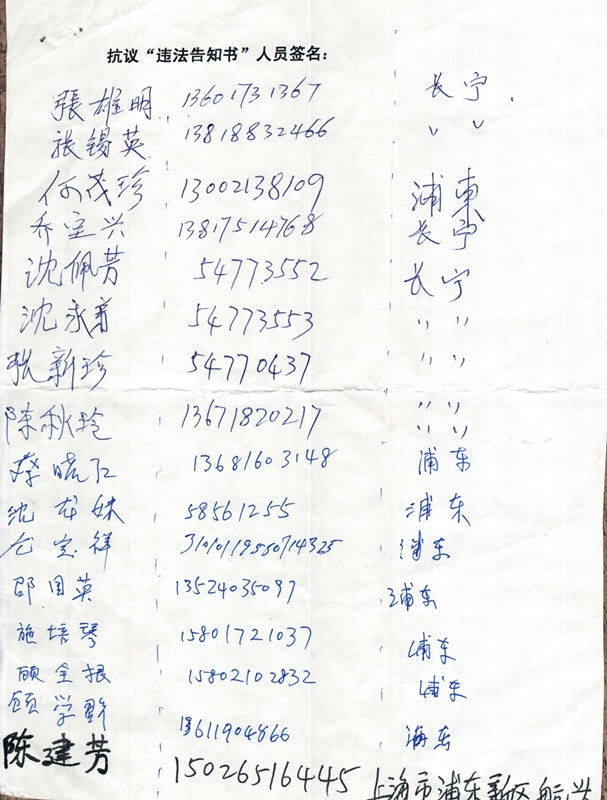 抗议“违法告知书”人员签名：
張雄明 13601731367 长宁
张锡英 13818832466 〃 〃
何茂珍 13002138109 浦東
乔宝兴 13817514768 长宁
沈佩芳 54773552 长宁
沈永 54773553 〃 〃
张新珍 54770437 〃 〃
陳秋玲 13671820217 〃 〃
〃 〃
蔡晓仁 13681603148 浦东
沈龙妹 58561255 浦东
仝宝祥 31010119550714325 浦东
邵国英 13524035097 浦东
施培琴 15801721037 浦东
顾全根 15802102832 浦东
顾学 13611904866 浦东
陈建芳 15026516445 上海市浦东新区